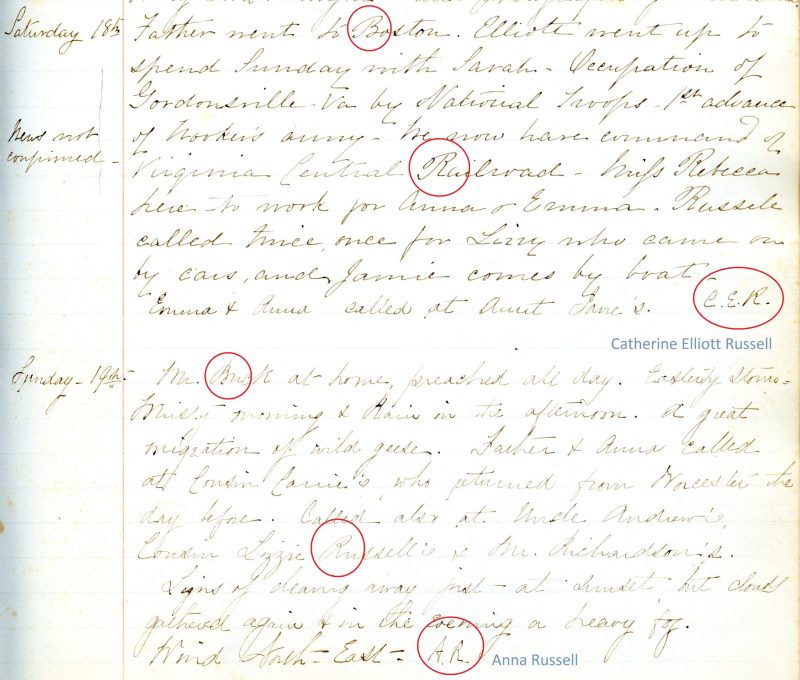 Saturday 18th Father went to Boston. Elliott went up to
spend Sunday with Sarah - Occupation of
Gordonsville - Va by National Troops - 1st advance
News not of Hooker's army - We now have command of
confirmed - Virginia Central Railroad - Miss Rebecca
here - to work for Anna & Emma. Russell
called twice, once for Lizzy who came on
by cars, and Jamie comes by boat
Emma & Anna called at Aunt Jane's. C.E.R.
Catherine Elliott Russell
Sunday - 19th - Mr. Buck at home, preached all day. Easterly Storm -
Mist morning & Rain in the afternoon. A great
migration of wild geese. Father & Anna called
at Cousin Carrie's, who returned from Worcester the
day before. Called also at Uncle Andrew's,
Cousin Lizzie Russell's & Mr. Richardson's.
Signs of clearing away just at sunset, but clouds
gathered again & in the evening a heavy fog.
Wind North-East - A.R.
Anna Russell